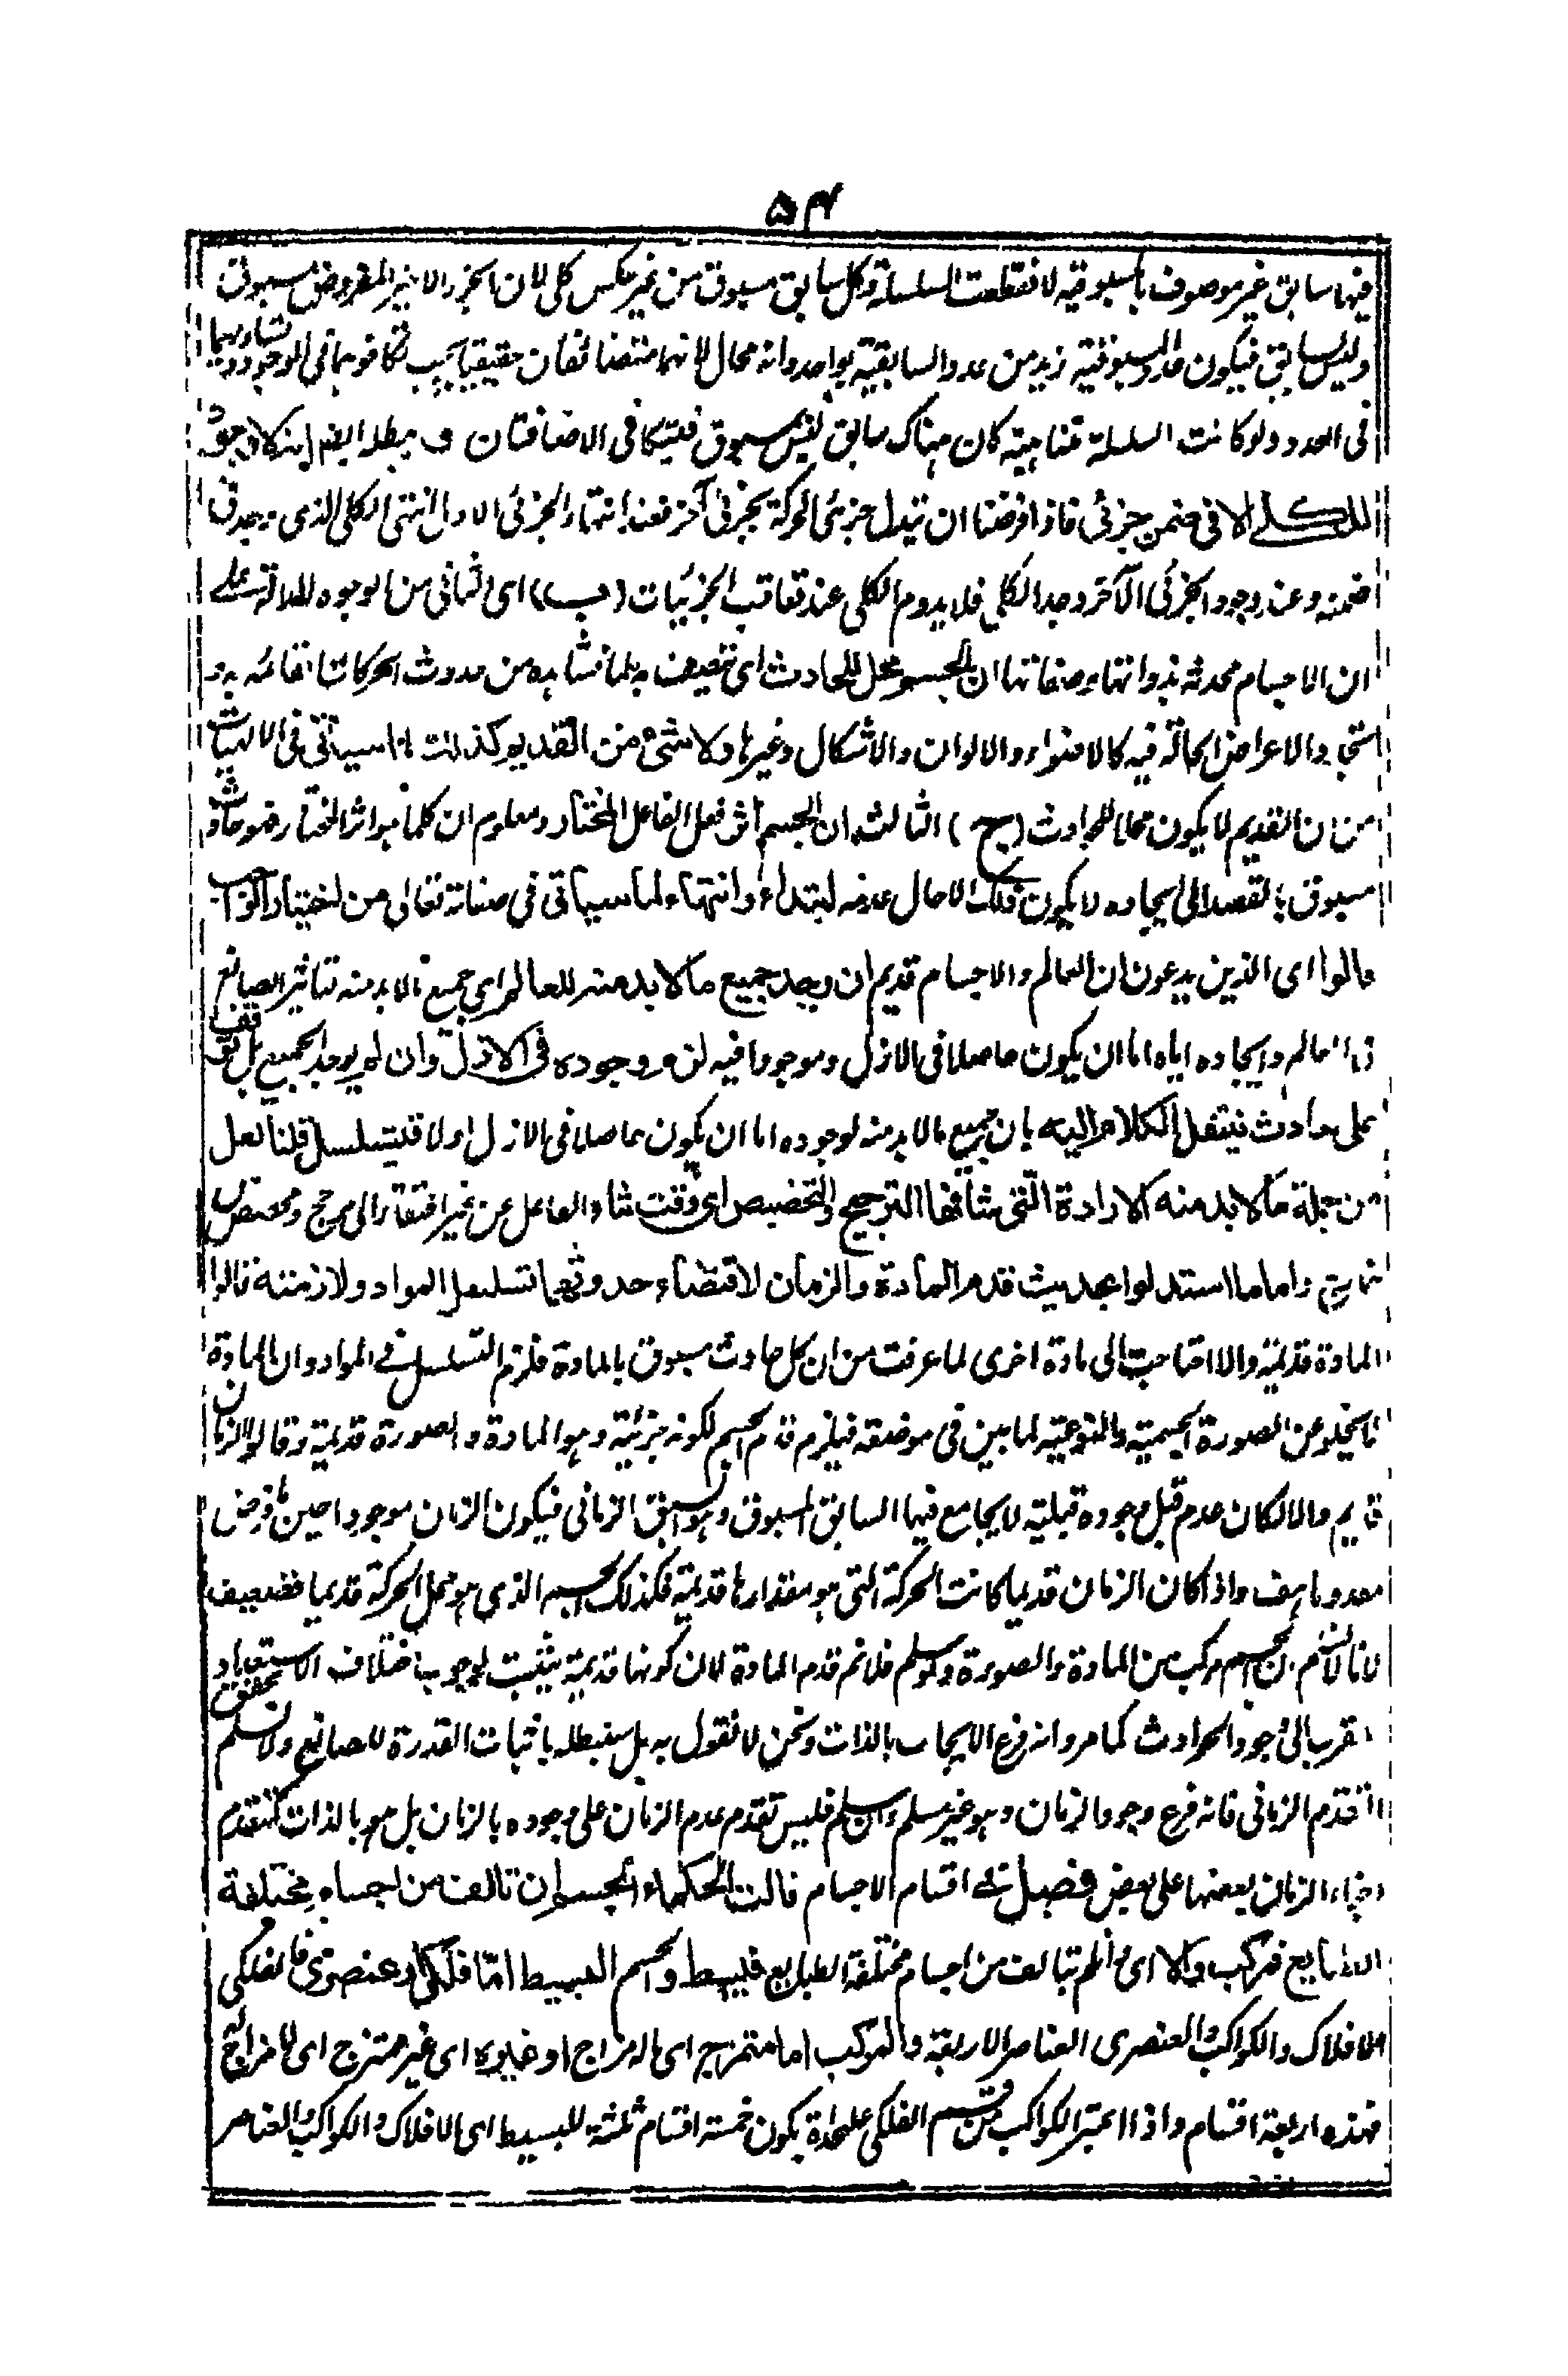 ٥٤
فيها سابق غير موصوف بالمسبوقية لانقطعت السلسلة وكل سابق مسبوق من غير عكس كلى لان الجزء الاخير المفروض مسبوق
وليس سابق فيكون عدد المسبوقية ازيد من عدد السابقية بواحد وانه محال لانهما متضائفان حقيقيا يجب تكافوهما فى الوجود وتساويهما
فى العدد ولو كانت السلسلة متناهية كان هناك سابق ليس مسبوق فيتكافى الاضافتان و يبطله ايضا انه لا وجود
للكلى الا فى ضمن جزئى فاذا فرضنا ان تبدل جزئى الحركة بجزئى آخر فعند انتهاء الجزئى الاول انتفى الكلى الذى وجد فى
ضمنه وعند وجود الجزئى الآخر وجد الكلى فلا يدوم الكلى عند تعاقب الجزئيات (ب) اى الثانى من الوجوه الدالة على
ان الاجسام محدثة بذواتها وصفاتها ان الجسم محل للحادث اى تتصف به لما نشاهده من حدوث الحركات القائمة به و
والاعراض الحالة فيه كالاضواء والالوان والاشكال وغيرها ولا شئ من القديم كذلك لما سيأتى فى الالهيات
من ان القديم لا يكون محلا للحوادث (ج) الثالث ان الجسم اثر فعل الفاعل المختار ومعلوم ان كلما هو اثر المختار فهو حادث
مسبوق بالقصد الى ايجاده لا يكون ذلك الا حال عدمه ابتداء وانتهاء لما سيأتى فى صفاته تعالى من اختيار الواجب
قالوا اى الذين يدعون ان العالم والاجسام قديم ان وجد جميع ما لا بد منه للعالم اى جميع ما لا بد منه تأثير الصانع
فى العالم وايجاده اياه اما ان يكون حاصلا فى الازل وموجودا فيه لزم وجوده فى الازل وان لم يوجد الجميع بل توقف
على حادث فينتقل الكلام اليه بان جميع ما لا بد منه لوجوده اما ان يكون حاصلا فى الازل او لا فيتسلسل قلنا لعل
من جملة ما لا بد منه الارادة التى شانها الترجيح والتخصيص اى وقت شاء الفاعل من غير افتقار الى مرجح ومخصص
واما ما استدلوا بحديث قدم المادة والزمان لاقتضاء حدوثهما تسلسل المواد ولازمته قالوا
المادة قديمة والا احتاجت الى مادة اخرى لما عرفت من ان كل حادث مسبوق بالمادة فلزم التسلسل فى المواد وان المادة
لا تخلو عن الصورة الجسمية والنوعية لما بين فى موضعه فيلزم قدم الجسم لكونه جزئية وهو المادة والصورة قديمة وقالوا الزمان
قديم والا لكان عدم قبل وجوده قبلية لا يجامع فيها السابق المسبوق وهو السبق الزمانى فيكون الزمان موجودا حين ما فرض
معدوما هف واذا كان الزمان قديما كانت الحركة التى هو مقدارها قديمة فكذلك الجسم الذى هو محل الحركة قديما فضعيف
لانا لا نسلم ان الجسم مركب من المادة والصورة ولو سلم فلا نم قدم المادة لان كونها قديمة يثبت لوجوب اختلاف الاستعداد
تقرب الى وجود الحوادث كما مر وانه فرع الايجاب بالذات ونحن لا نقول به بل سنبطله باثبات القدرة للصانع ولا نسلم تحقق
التقدم الزمانى فانه فرع وجود الزمان وهو غير مسلم وان سلم فليس تقدم عدم الزمان على وجوده بالزمان بل هو بالذات كتقدم
اجزاء الزمان بعضها على بعض فصل فى اقسام الاجسام قالت الحكماء الجسم ان تالف من اجسام مختلفة
الطبايع فمركب والا اى وان لم تتالف من اجسام مختلفة الطبايع فبسيط والجسم البسيط اما فلكى او عنصرى فالفلكى
الافلاك والكواكب والعنصرى العناصر الاربعة والمركب اما ممتزج اى له مزاج او غيره اى غير ممتزج اى لا مزاج له
فهذه اربعة اقسام واذا اعتبر الكواكب من قسم الفلكى علحدة يكون خمسة اقسام ثلثة للبسيط اى الافلاك والكواكب والعناصر